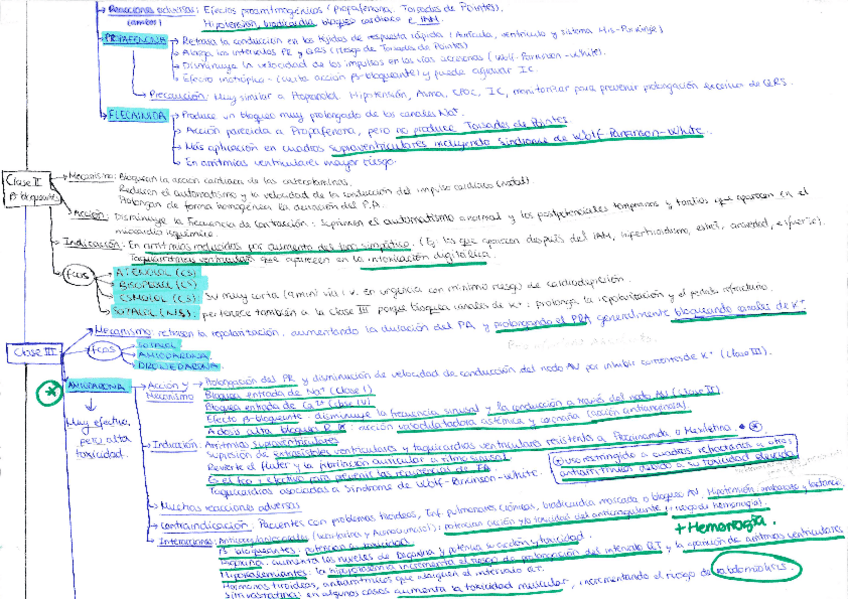 Reacciones adversas: Efectos proarritmogénicos (Propafenona: Torsades de Pointes).
(ambos) Hipotensión, bradicardia, bloqueo cardiaco e IAM.
PROPAFENONA Retrasa la conducción en los tejidos de respuesta rápida (Aurícula, ventrículo y sistema His-Purkinje)
Alarga los intervalos PR y QRS (riesgo de Torsades de Pointes)
Disminuye la velocidad de los impulsos en las vías accesorias (Wolf-Parkinson-White).
Efecto inotrópico - (cierta acción β-bloqueante) y puede agravar IC.
Precaución: Muy similar a Hipotensión, Asma, EPOC, IC, monitorizar para prevenir prolongación excesiva de QRS.
FLECAINIDA Produce un bloqueo muy prolongado de los canales Na+.
Acción parecida a Propafenona, pero no produce Torsades de Pointes
Más aplicación en cuadros supraventriculares incluyendo síndrome de Wolf-Parkinson-White.
En arritmias ventriculares mayor riesgo.
Clase II β bloqueantes
Mecanismo: Bloquean la acción cardiaca de las catecolaminas.
Reducen el automatismo y la velocidad de la conducción del impulso cardiaco (nodal)
Prolongan de forma homogénea la duración del P.A.
Acción: Disminuye la frecuencia de contracción: Suprimen el automatismo anormal y los postpotenciales tempranos y tardíos que aparecen en el
miocardio isquémico.
Indicación: En arritmias inducidas por aumento del tono simpático. (Ej. las que aparecen después del IAM, hipertiroidismo, estrés, ansiedad, esfuerzo).
Taquiarritmias ventriculares que aparecen en la intoxicación digitálica.
fcos ATENOLOL (CS)
BISOPROLOL (CS)
ESMOLOL (CS): Su muy corta (9min) vía i.v. en urgencia con mínimo riesgo de cardiodepresión.
SOTALOL (NS): pertenece también a la clase III porque bloquea canales de K+: prolonga la repolarización y el periodo refractario.
Clase III
Mecanismo: retrasan la repolarización, aumentando la duración del PA y prolongando el PRA generalmente bloqueando canales de K+
fcos SOTALOL
AMIODARONA
DRONEDARONA
AMIODARONA
Muy efectivo, pero alta toxicidad.
Acción y Mecanismo Prolongación del PR y disminución de velocidad de conducción del nodo AV por inhibir corrientes de K+ (Clase III).
Bloquea entrada de Na+ (Clase I)
Bloquea entrada de Ca2+ (Clase IV)
Efecto β-bloqueante: disminuye la frecuencia sinusal y la conducción a través del nodo AV (Clase II)
A dosis alta bloquea R α: acción vasodilatadora sistémica y coronaria (acción antianginosa)
Indicación: Arritmias supraventriculares
Supresión de Extrasístoles ventriculares y taquicardias ventriculares resistente a Procainamida o Mexiletina.
Revierte el flúter y la fibrilación auricular a ritmo sinusal
Es el fco + efectivo para prevenir las recurrencias de FA
Taquicardias asociadas a Síndrome de Wolf-Parkinson-White.
Uso restringido a cuadros refractarios a otros
antiarrítmicos debido a su toxicidad elevada
Muchas reacciones adversas
Contraindicación: Pacientes con problemas tiroideos, Enf. pulmonares crónicas, bradicardia marcada o bloqueo AV, Hipotensión, embarazo y lactancia.
Interacciones: Anticoagulantes orales (Warfarina y Acenocumarol): potencian acción y/o toxicidad del anticoagulante (riesgo de hemorragia).
+ Hemorragia.
β bloqueantes: potencia su toxicidad
Digoxina: aumenta los niveles de Digoxina y potencia su acción y toxicidad.
la hipopotasemia incrementa el riesgo de prolongación del intervalo QT y la aparición de arritmias ventriculares
Hormonas tiroideas, antiarrítmicos que alarguen el intervalo QT.
Simvastatina: en algunos casos aumenta la toxicidad muscular, incrementando el riesgo de rabdomiólisis.